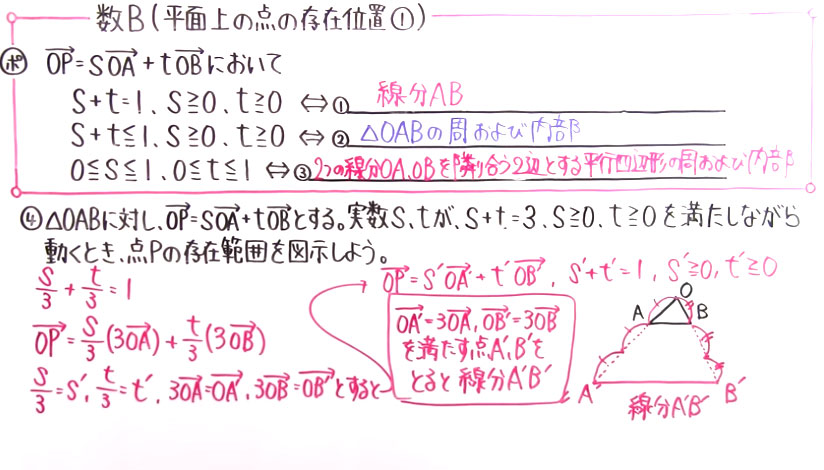 数B(平面上の点の存在位置①)
ポ OP=sOA+tOBにおいて
s+t=1、s≧0、t≧0 ⇔① 線分AB
s+t≦1、s≧0、t≧0 ⇔② △OABの周および内部
0≦s≦1、0≦t≦1 ⇔③ 2つの線分OA、OBを隣り合う2辺とする平行四辺形の周および内部
④△OABに対し、OP=sOA+tOBとする。実数s、tが、s+t=3、s≧0、t≧0を満たしながら
動くとき、点Pの存在範囲を図示しよう。
s/3+t/3=1
OP=s/3(3OA)+t/3(3OB)
s/3=s′、t/3=t′、3OA=OA′、3OB=OB′とすると
OP=s′OA′+t′OB′、s′+t′=1、s′≧0、t′≧0
OA′=3OA、OB′=3OB
を満たす点A′、B′を
とると 線分A′B′
O
A B
A′ B′
線分A′B′